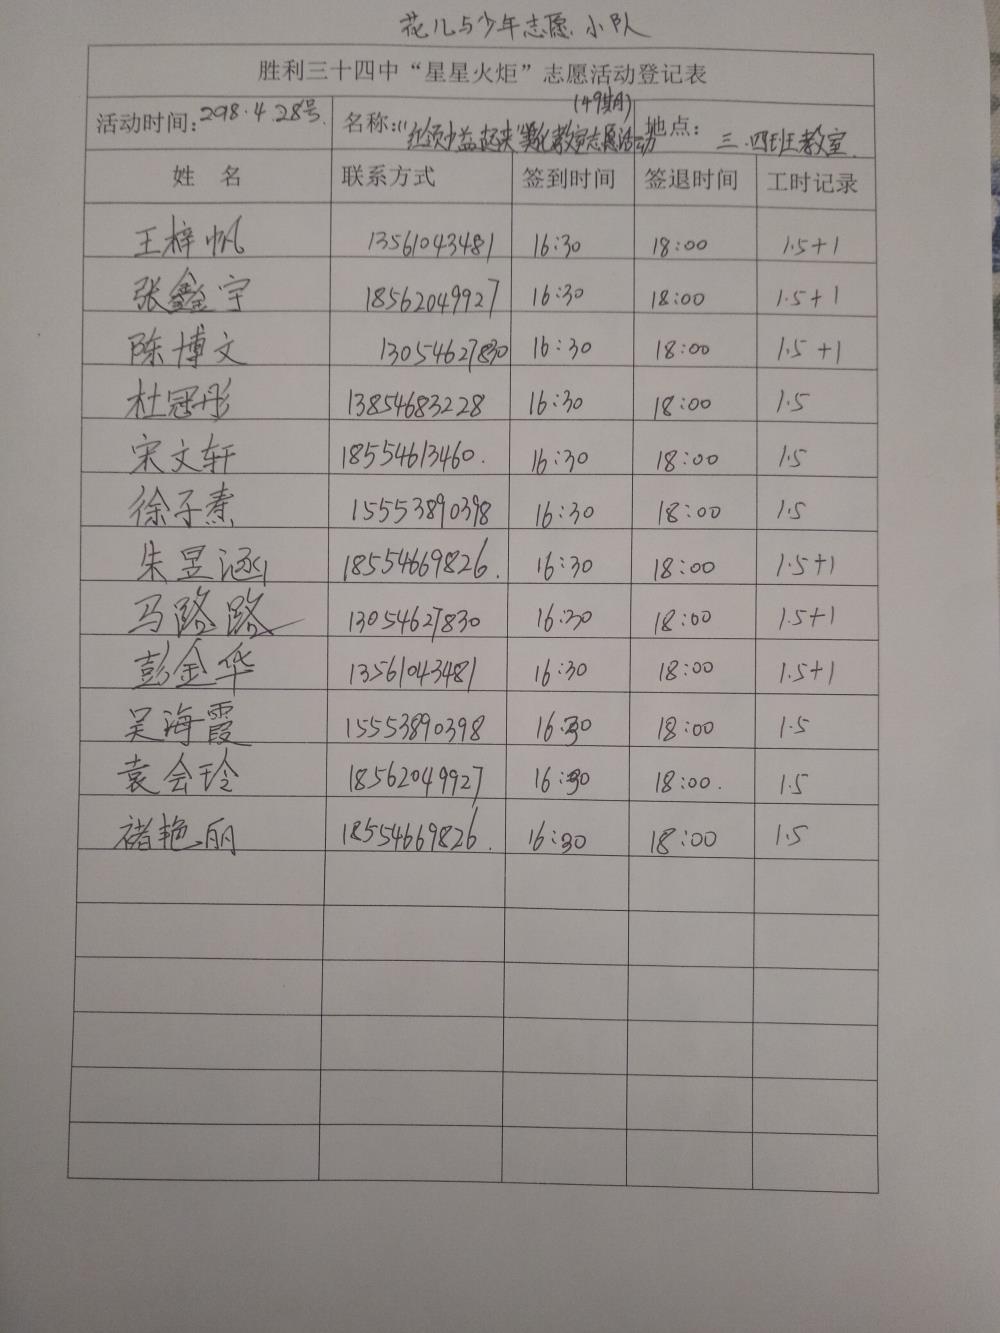 花儿与少年志愿小队
胜利三十四中“星星火炬”志愿活动登记表
(49期)
活动时间:2018.4.28号. 名称:“红领巾益起来”美化教室志愿活动 地点: 三.四班教室.
姓 名 联系方式 签到时间 签退时间 工时记录
王梓帆 13561043481 16:30 18:00 1.5+1
张鑫宇 18562049927 16:30 18:00 1.5+1
陈博文 13054627830 16:30 18:00 1.5+1
杜冠彤 13854683228 16:30 18:00 1.5
宋文轩 18554613460. 16:30 18:00 1.5
徐子 15553890398 16:30 18:00 1.5
朱昱涵 18554669826. 16:30 18:00 1.5+1
马路路 13054627830 16:30 18:00 1.5+1
彭金华 13561043481 16:30 18:00 1.5+1
吴海霞 15553890398 16:30 18:00 1.5
袁会玲 18562049927 16:30 18:00. 1.5
褚艳丽 18554669826. 16:30 18:00 1.5